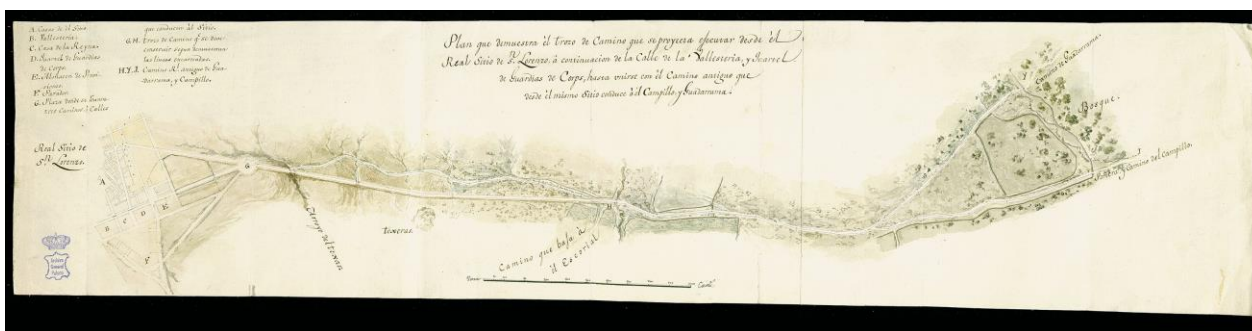 A. Casas de el Sitio
B. Vallestería.
C. Casa de la Reyna
D. Quartel de Guardias
de Corps.
E. Almacen de
F. Parador.
G. Plaza desde
Caminos ò Calles
que conducen al Sitio.
G.H. trozo de Camino q.e se
construir segun demuestran
las lineas encarnadas.
H.Y.J. Camino R.l antiguo de Gua-
darrama, y Campillo.
Plan que demuestra èl trozo de Camino que se proyecta ejecutar desde èl
Real Sitio de S.n Lorenzo, à continuacion de la Calle de la Vallestería, y Quartel
de Guardias de Corps, hasta unirse con èl Camino antiguo que
desde èl mismo Sitio conduce à èl Campillo, y Guadarrama.
Real Sitio de
S.n Lorenzo.
A
B
C
D
E
F
G
Arroyo del
texeras.
H
Camino que baja à
èl Escorial
Camino de Guadarrama.
Bosque.
y Camino del Campillo.